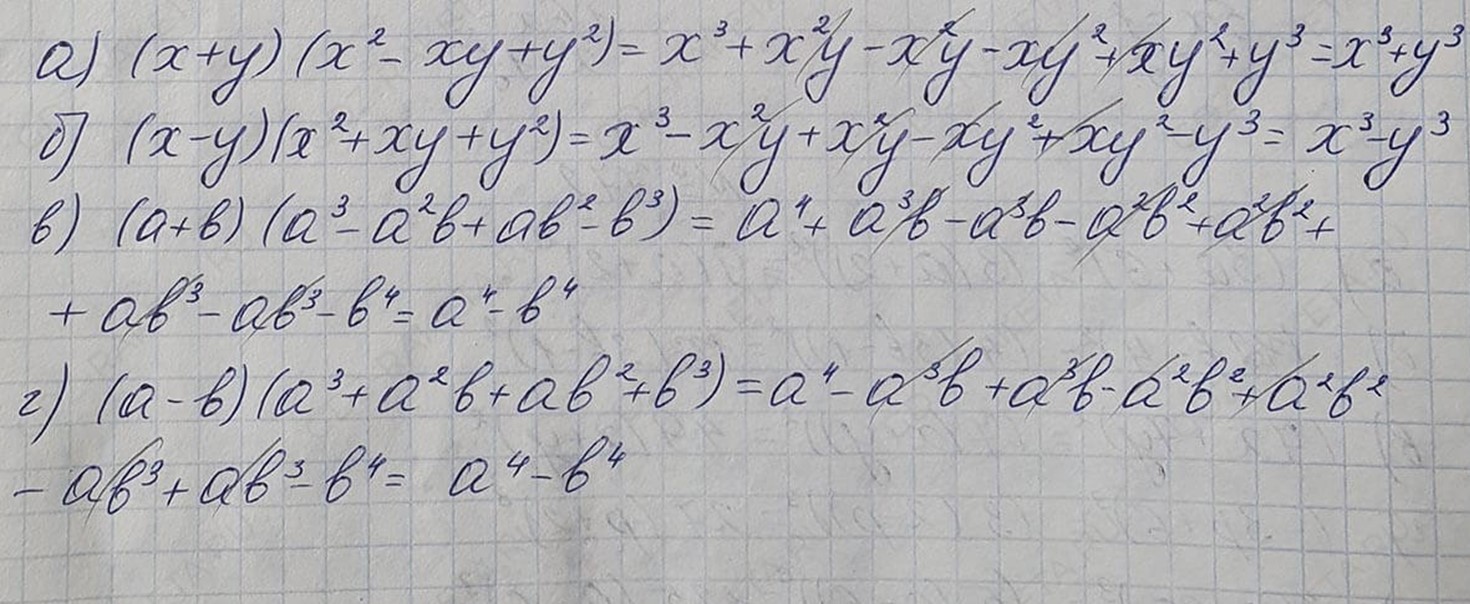 а) (x+y)(x²-xy+y²)=x³+x²y-x²y-xy²+xy²+y³=x³+y³
б) (x-y)(x²+xy+y²)=x³-x²y+x²y-xy²+xy²-y³=x³-y³
в) (a+b)(a³-a²b+ab²-b³)=a⁴+a³b-a³b-a²b²+a²b²+
+ab³-ab³-b⁴=a⁴-b⁴
г) (a-b)(a³+a²b+ab²+b³)=a⁴-a³b+a³b-a²b²+a²b²
-ab³+ab³-b⁴=a⁴-b⁴